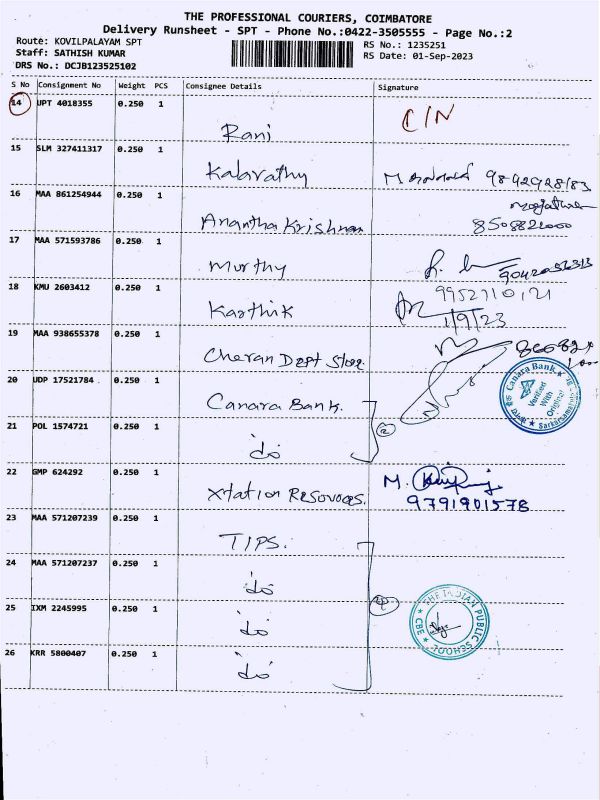 THE PROFESSIONAL COURIERS, COIMBATORE
Delivery Runsheet - SPT - Phone No.:0422-3505555 - Page No.:2
Route: KOVILPALAYAM SPT
Staff: SATHISH KUMAR
DRS No.: DCJB123525102
RS No.: 1235251
RS Date: 01-Sep-2023
S No Consignment No Weight PCS Consignee Details Signature
14 UPT 4018355 0.250 1 Rani C/N
15 SLM 327411317 0.250 1 Kalavathy M. 9842928183
16 MAA 861254944 0.250 1 Anantha Krishnan 8508822000
17 MAA 571593786 0.250 1 Murthy
18 KMU 2603412 0.250 1 Karthik 9952710121
1/9/23
19 MAA 938655378 0.250 1 Cheran Dept Store
20 UDP 17521784 0.250 1 Canara Bank.
Canara Bank
Verified With Original
21 POL 1574721 0.250 1 do
2
22 GMP 624292 0.250 1 Xtation Resources. M.
9791901578
23 MAA 571207239 0.250 1 TIPS.
24 MAA 571207237 0.250 1 do
4
25 IXM 2245995 0.250 1 do
THE INDIAN PUBLIC SCHOOL
CBE
26 KRR 5800407 0.250 1 do